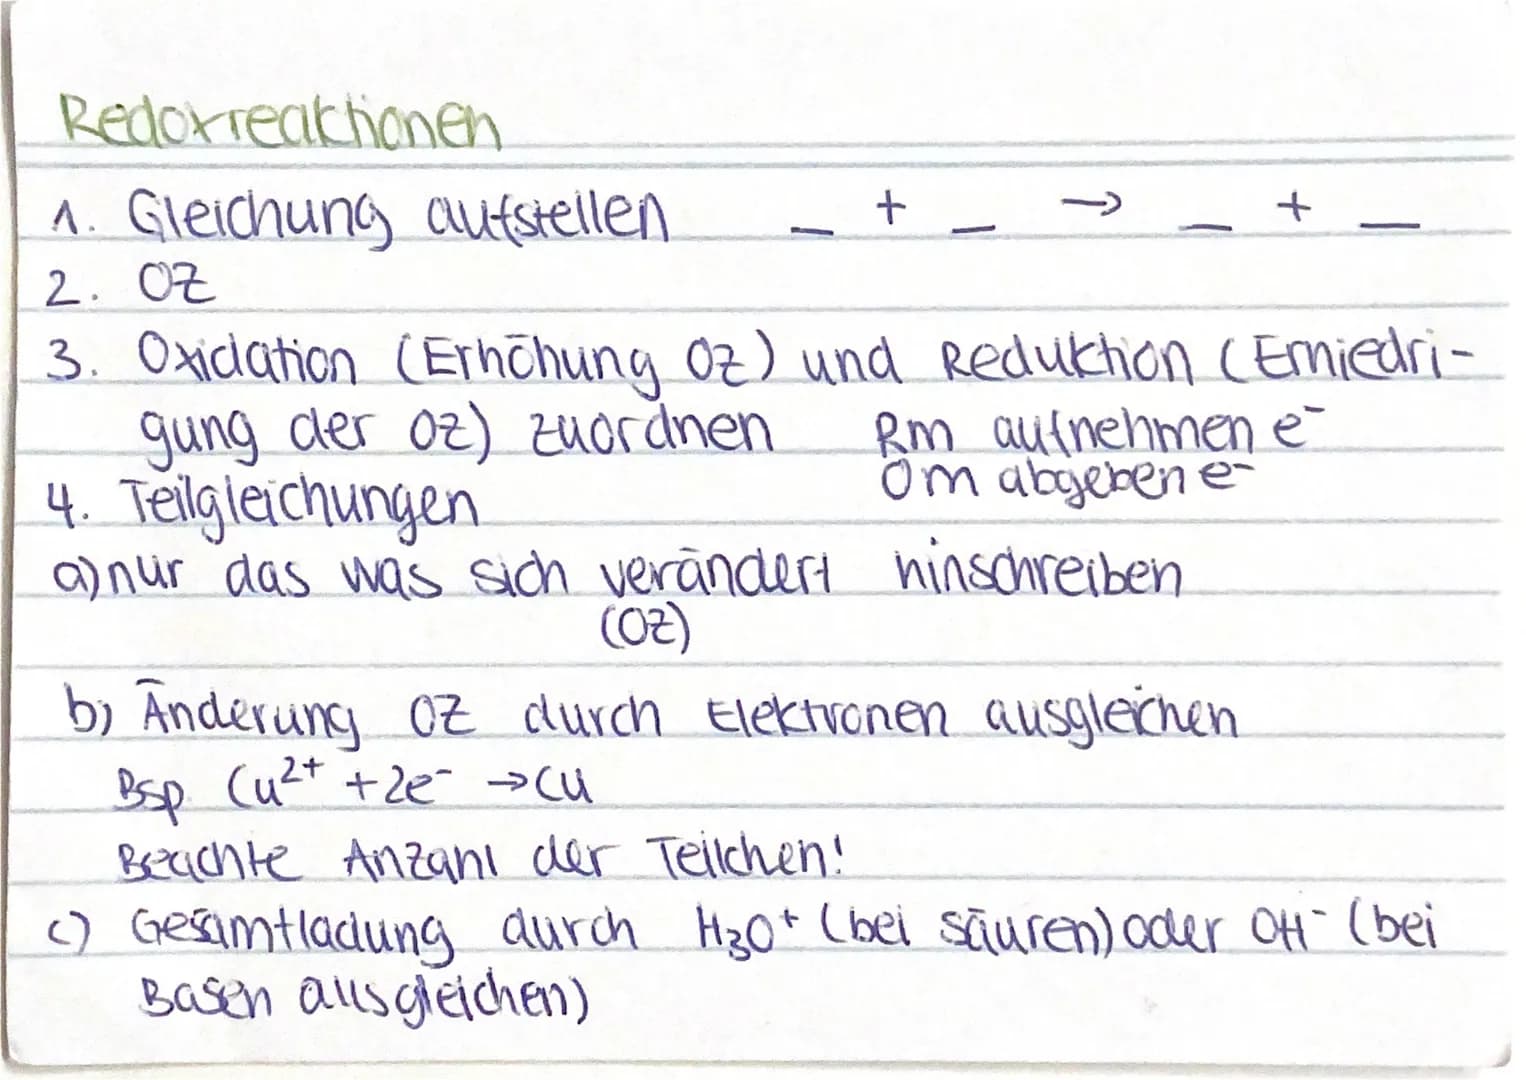 Redoxreaktionen
1. Gleichung aufstellen _ + _ → _ + _
2. OZ
3. Oxidation (Erhöhung OZ) und Reduktion (Erniedri-
gung der OZ) zuordnen Rm aufnehmen e⁻
Om abgeben e⁻
4. Teilgleichungen
a) nur das was sich verändert hinschreiben
(OZ)
b) Änderung OZ durch Elektronen ausgleichen
Bsp. Cu²⁺ + 2e⁻ → Cu
Beachte Anzahl der Teilchen!
c) Gesamtladung durch H₃O⁺ (bei säuren) oder OH⁻ (bei
Basen ausgleichen)